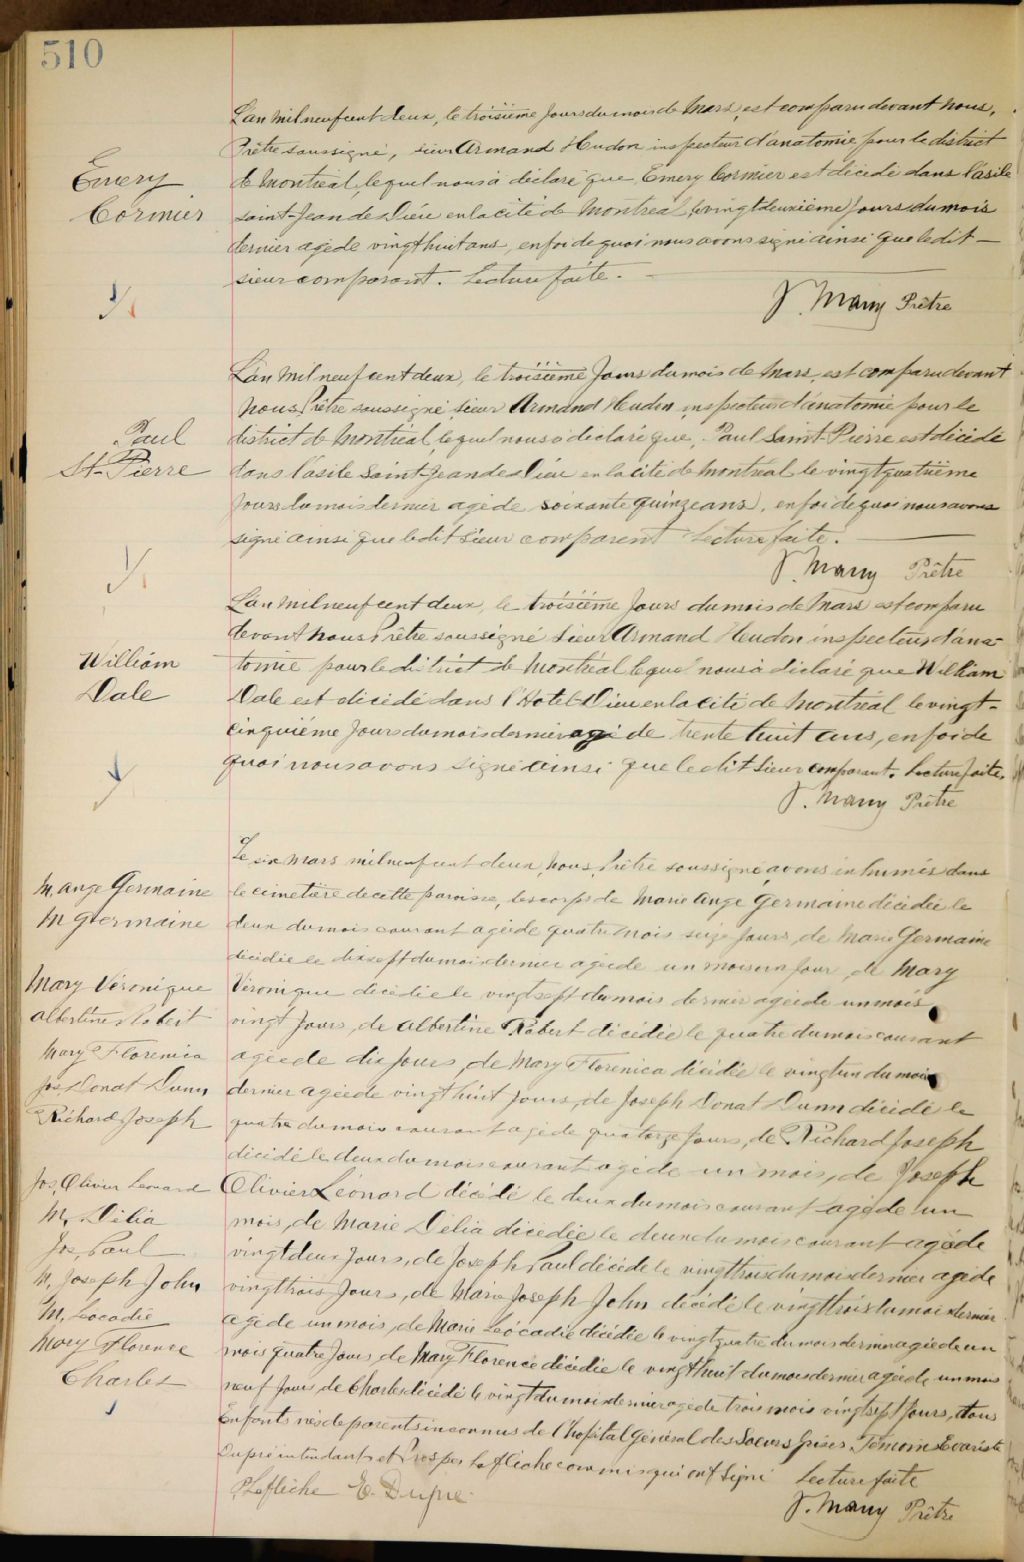 510
L'an mil neuf cent deux, le troisième jours du mois de Mars, est comparu devant Nous,
Prêtre soussigné, sieur Armand Hudon inspecteur d'anatomie pour le district
Emery
de Montréal, lequel nous à déclaré que Emery Cormier est décédé dans l'asile
Cormier
saint-Jean de Dieu en la cité de Montréal le vingt deuxième Jours du mois
dernier agé de vingt huit ans, en foi de quoi nous avons signé ainsi que le dit —
sieur comparant. Lecture faite. —
J. Many Prêtre
L'an Mil neuf cent deux, le troisième Jours du mois de Mars, est comparu devant
Nous Prêtre soussigné Sieur Armand Heudon inspecteur d'anatomie pour le
Paul
district de Montréal, lequel nous à déclaré que, Paul Saint-Pierre est décédé
St-Pierre
dans l'asile Saint-Jean de Dieu en la cité de Montréal le vingt quatrième
Jours du mois dernier agé de soixante quinze ans, en foi de quoi nous avons
signé ainsi que le dit Sieur comparent Lecture faite. —
J. Many Prêtre
L'an Mil neuf cent deux, le troisième Jours du mois de Mars est comparu
devant Nous Prêtre soussigné Sieur Armand Heudon inspecteur d'ana-
William
tomie pour le district de Montréal lequel nous à déclaré que William
Dale
Dale est décédé dans l'Hotel-Dieu en la cité de Montréal le vingt-
cinquième Jours du mois dernier agé de trente huit ans, en foi de
quoi nous avons signé ainsi que le dit Sieur comparant. Lecture faite.
J. Many Prêtre
Le six Mars mil neuf cent deux, Nous, Prêtre soussigné, avons inhumés dans
M. Ange Germaine
le cimetière de cette paroisse, les corps de Marie Ange Germaine décédée le
M Germaine
deux du mois courant agée de quatre Mois seize Jours, de Marie Germaine
décédée le dix sept du mois dernier agée de un mois un Jour, de Mary
Mary Véronique
Véronique décédée le vingt sept du mois dernier agée de un mois
Albertine Robert
vingt Jours, de Albertine Robert décédée le quatre du mois courant
Mary Florenica
agée de dix Jours, de Mary Florenica décédée le vingt un du mois
Jos. Donat Dunn
dernier agée de vingt huit Jours, de Joseph Donat Dunn décédé le
Richard Joseph
quatre du mois courant agé de quatorze Jours, de Richard Joseph
décédé le deux du mois courant agé de un mois, de Joseph
Jos, Olivier Leonard
Olivier Léonard décédé le deux du mois courant agé de un
M. Délia
mois, de Marie Délia décédée le deux du mois courant agé de
Jos. Paul
vingt deux Jours, de Joseph Paul décédé le vingt trois du mois dernier agé de
M. Joseph John
vingt trois Jours, de Marie Joseph John décédé le vingt trois du mois dernier
M. Léocadie
agé de un mois, de Marie Léocadie décédée le vingt quatre du mois dernier agée de un
Mary Florence
mois quatre Jours, de Mary Florence décédée le vingt huit du mois dernier agée de un mois
Charles
neuf Jours, de Charles décédé le vingt du mois dernier agé de trois mois vingt sept Jours, tous
Enfants nés de parents inconnus de l'hopital Général des Soeurs Grises. Témoins Evariste
Dupré intendant et Prosper Laflèche commis qui ont signé Lecture faite
P. Laflèche E. Dupré
J. Many Prêtre